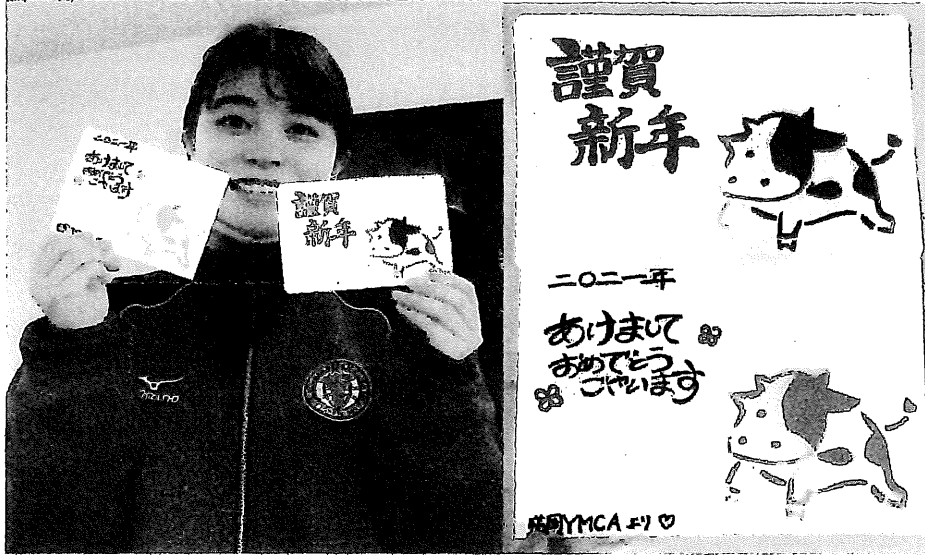 二〇二一年
あけまして
おめでとう
ございます
謹賀
新年
mizuno
謹賀
新年
二〇二一年
あけまして
おめでとう
ございます
盛岡YMCAより♡